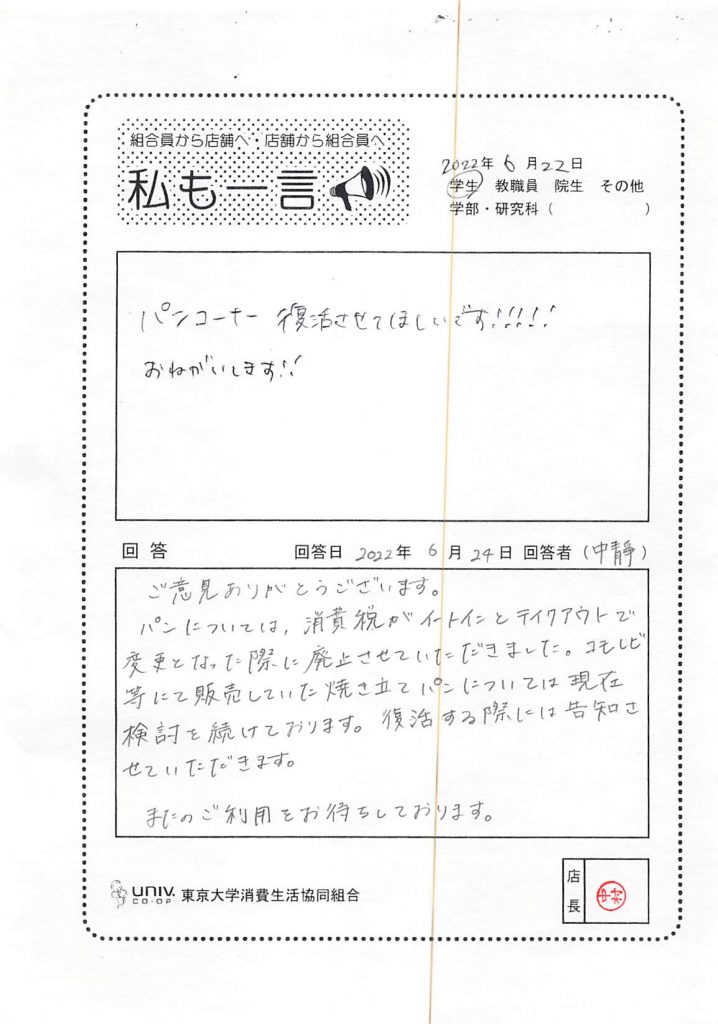 組合員から店舗へ・店舗から組合員へ
私も一言
2022年 6月22日
学生 教職員 院生 その他
学部・研究科( )
パンコーナー 復活させてほしいです!!!!!
おねがいします!!
回答 回答日 2022年 6月24日 回答者(中靜)
ご意見ありがとうございます。
パンについては、消費税がイートインとテイクアウトで
変更となった際に廃止させていただきました。コモレビ
等にて販売していた焼き立てパンについては現在
検討を続けております。復活する際には告知さ
せていただきます。
またのご利用をお待ちしております。
UNIV.
CO-OP
東京大学消費生活協同組合
店長
中村